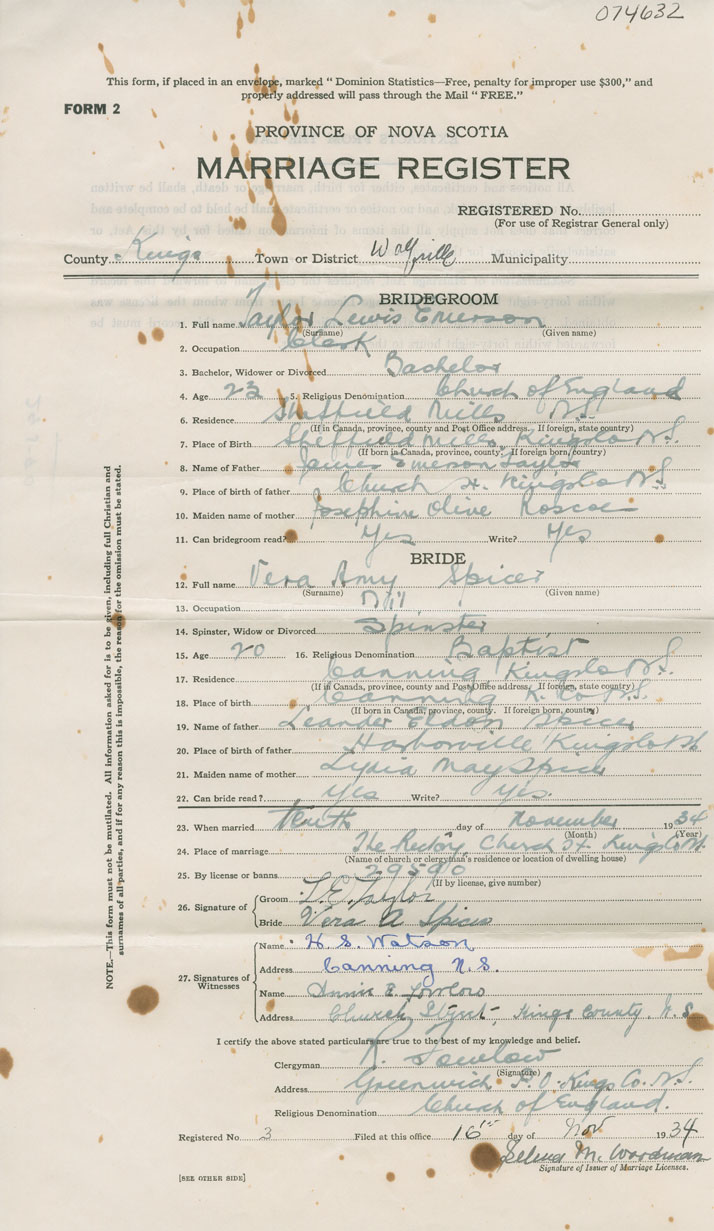 074632
This form, if placed in an envelope, marked “ Dominion Statistics—Free, penalty for improper use $300,” and
properly addressed will pass through the Mail “ FREE.”
FORM 2
PROVINCE OF NOVA SCOTIA
MARRIAGE REGISTER
REGISTERED No.
(For use of Registrar General only)
County Kings Town or District Wolfville Municipality
BRIDEGROOM
1. Full name Taylor Lewis Emerson
(Surname) (Given name)
2. Occupation Clerk
3. Bachelor, Widower or Divorced Bachelor
4. Age 23 5. Religious Denomination Church of England
6. Residence Sheffield Mills N.S.
(If in Canada, province, county and Post Office address. If foreign, state country)
7. Place of Birth Sheffield Mills, Kings Co N.S.
(If born in Canada, province, county. If foreign born, country)
8. Name of Father James Emerson Taylor
9. Place of birth of father Church St. Kings Co N.S.
10. Maiden name of mother Josephine Olive Roscoe
11. Can bridegroom read? Yes Write? Yes
BRIDE
12. Full name Vera Amy Spicer
(Surname) (Given name)
13. Occupation Nil
14. Spinster, Widow or Divorced Spinster
15. Age 20 16. Religious Denomination Baptist
17. Residence Canning Kings Co N.S.
(If in Canada, province, county and Post Office address. If foreign, state country)
18. Place of birth Canning K. Co. N.S.
(If born in Canada, province, county. If foreign born, country)
19. Name of father Leander Eldon Spicer
20. Place of birth of father Harborville Kings Co N.S.
21. Maiden name of mother Lydia May Spicer
22. Can bride read ? Yes Write? Yes.
23. When married Tenth day of November 1934
(Month) (Year)
24. Place of marriage The Rectory, Church St. Kings Co N.S.
(Name of church or clergyman's residence or location of dwelling house)
25. By license or banns 29590
(If by license, give number)
26. Signature of Groom L. E. Taylor
Bride Vera A Spicer
27. Signatures of Witnesses Name H. S. Watson
Address Canning N.S.
Name Annie E
Address Church Street, Kings County, N.S.
I certify the above stated particulars are true to the best of my knowledge and belief.
Clergyman
(Signature)
Address Greenwich P.O. Kings Co. N.S.
Religious Denomination Church of England.
Registered No. 3 Filed at this office 16th day of Nov 1934
Selena M. Woodman
Signature of Issuer of Marriage Licenses.
[SEE OTHER SIDE]
NOTE.—This form must not be mutilated. All information asked for is to be given, including full Christian and
surnames of all parties, and if for any reason this is impossible, the reason for the omission must be stated.